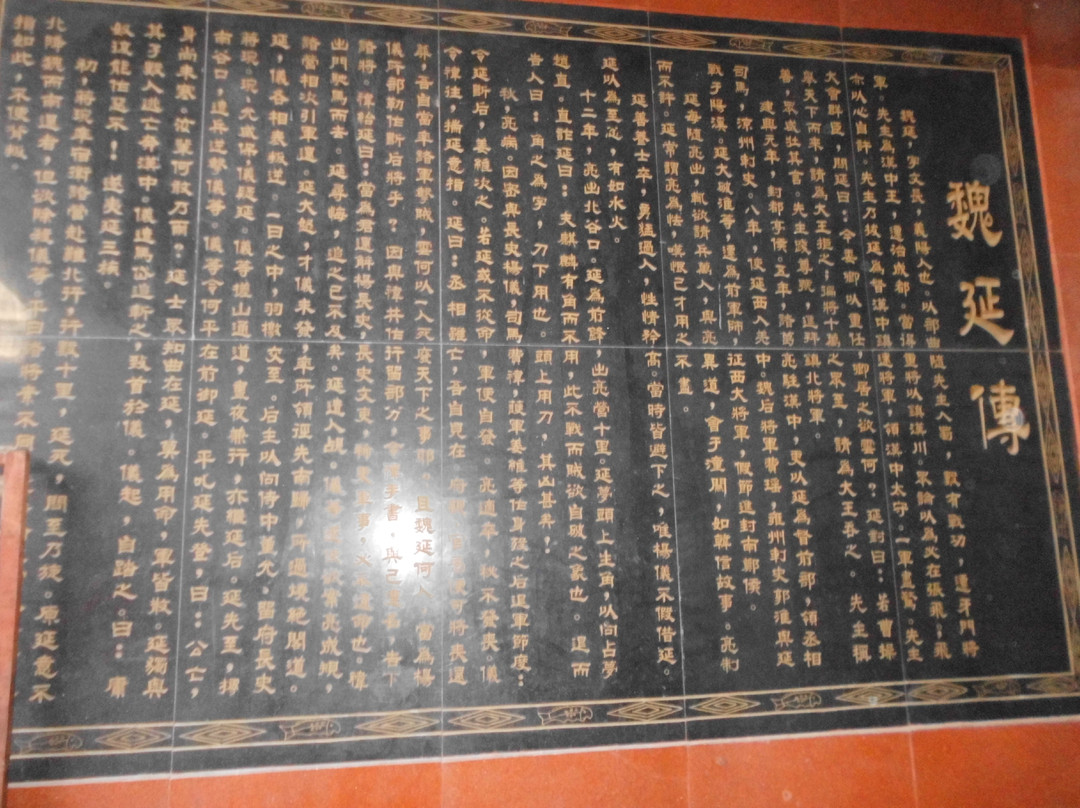 魏延傳
魏延，字文長，義陽人也。以部曲隨先主入蜀，數有戰功，遷牙門將
軍。先主為漢中王，遷治成都，當得重將以鎮漢川，眾論以為必在張飛，飛
亦以心自許。先主乃拔延為督漢中鎮遠將軍，領漢中太守，一軍盡驚。先主
大會群臣，問延曰：今委卿以重任，卿居之欲雲何？延對曰：若曹操
舉天下而來，請為大王拒之；偏將十萬之眾至，請為大王吞之。先主稱
善，眾咸壯其言。先主踐尊號，進拜鎮北將軍。
建興元年，封都亭侯。五年，諸葛亮駐漢中，更以延為督前部，領丞相
司馬、涼州刺史。八年，使延西入羌中，魏后將軍費瑤、雍州刺史郭淮與延
戰于陽溪，延大破淮等，遷為前軍師，征西大將軍，假節，進封南鄭侯。
延每隨亮出，輒欲請兵萬人，與亮異道，會于潼關，如韓信故事，亮制
而不許。延常謂亮為怯，嘆恨己才用之不盡。
延善養士卒，勇猛過人，性情矜高，當時皆避下之，唯楊儀不假借延。
延以為至忿，有如水火。
十二年，亮出北谷口，延為前鋒，出亮營十里。延夢頭上生角，以問占夢
趙直，直詐延曰：夫麒麟有角而不用，此不戰而賊欲自破之象也。退而
告人曰：角之為字，刀下用也。頭上用刀，其凶甚矣！
秋，亮病，困，密與長史楊儀，司馬費禕，護軍姜維等作身歿之后退軍節度：
令延斷后，姜維次之。若延或不從命，軍便自發。亮適卒，秘不發喪，儀
令禕往，揣延意指。延曰：丞相雖亡，吾自見在。府 可將喪還
葬，吾自當率諸軍擊賊，雲何以一人死廢天下之事邪？且魏延何人，當為楊
儀所部勒作斷后將乎？因與禕共作行留部分，令禕手書，與己 告下
諸將。禕紿延曰：當為君還解楊長史，長史文吏，稀更軍事，必不違命也。禕
出門馳馬而去，延尋悔，追之已不及矣。延遣人覘，儀等 欲案亮成規，
諸營相次引軍還。延大怒，才儀未發，率所領逕先南歸，所過燒絕閣道。
延、儀各相表叛逆，一日之中，羽檄交至。后主以問侍中董允、留府長史
蔣琬，琬、允咸保儀疑延。儀等槎山通道，晝夜兼行，亦繼延后。延先至，據
南谷口，遣兵逆擊儀等，儀等令何平在前御延。平叱延先登，曰：公亡，
身尚未寒，汝輩何敢乃爾？延士眾知曲在延，莫為用命，軍皆散。延獨與
其子數人逃亡奔漢中，儀遣馬岱追斬之，致首於儀，儀起，自踏之，曰：庸
奴復能作惡不！遂夷延三族。
初，蔣琬率宿衛諸營赴難北行，行數十里，延死，問至乃旋。原延意不
北降魏而南還者，但欲除殺儀等，平日諸將素不同
指如此，不便背叛。